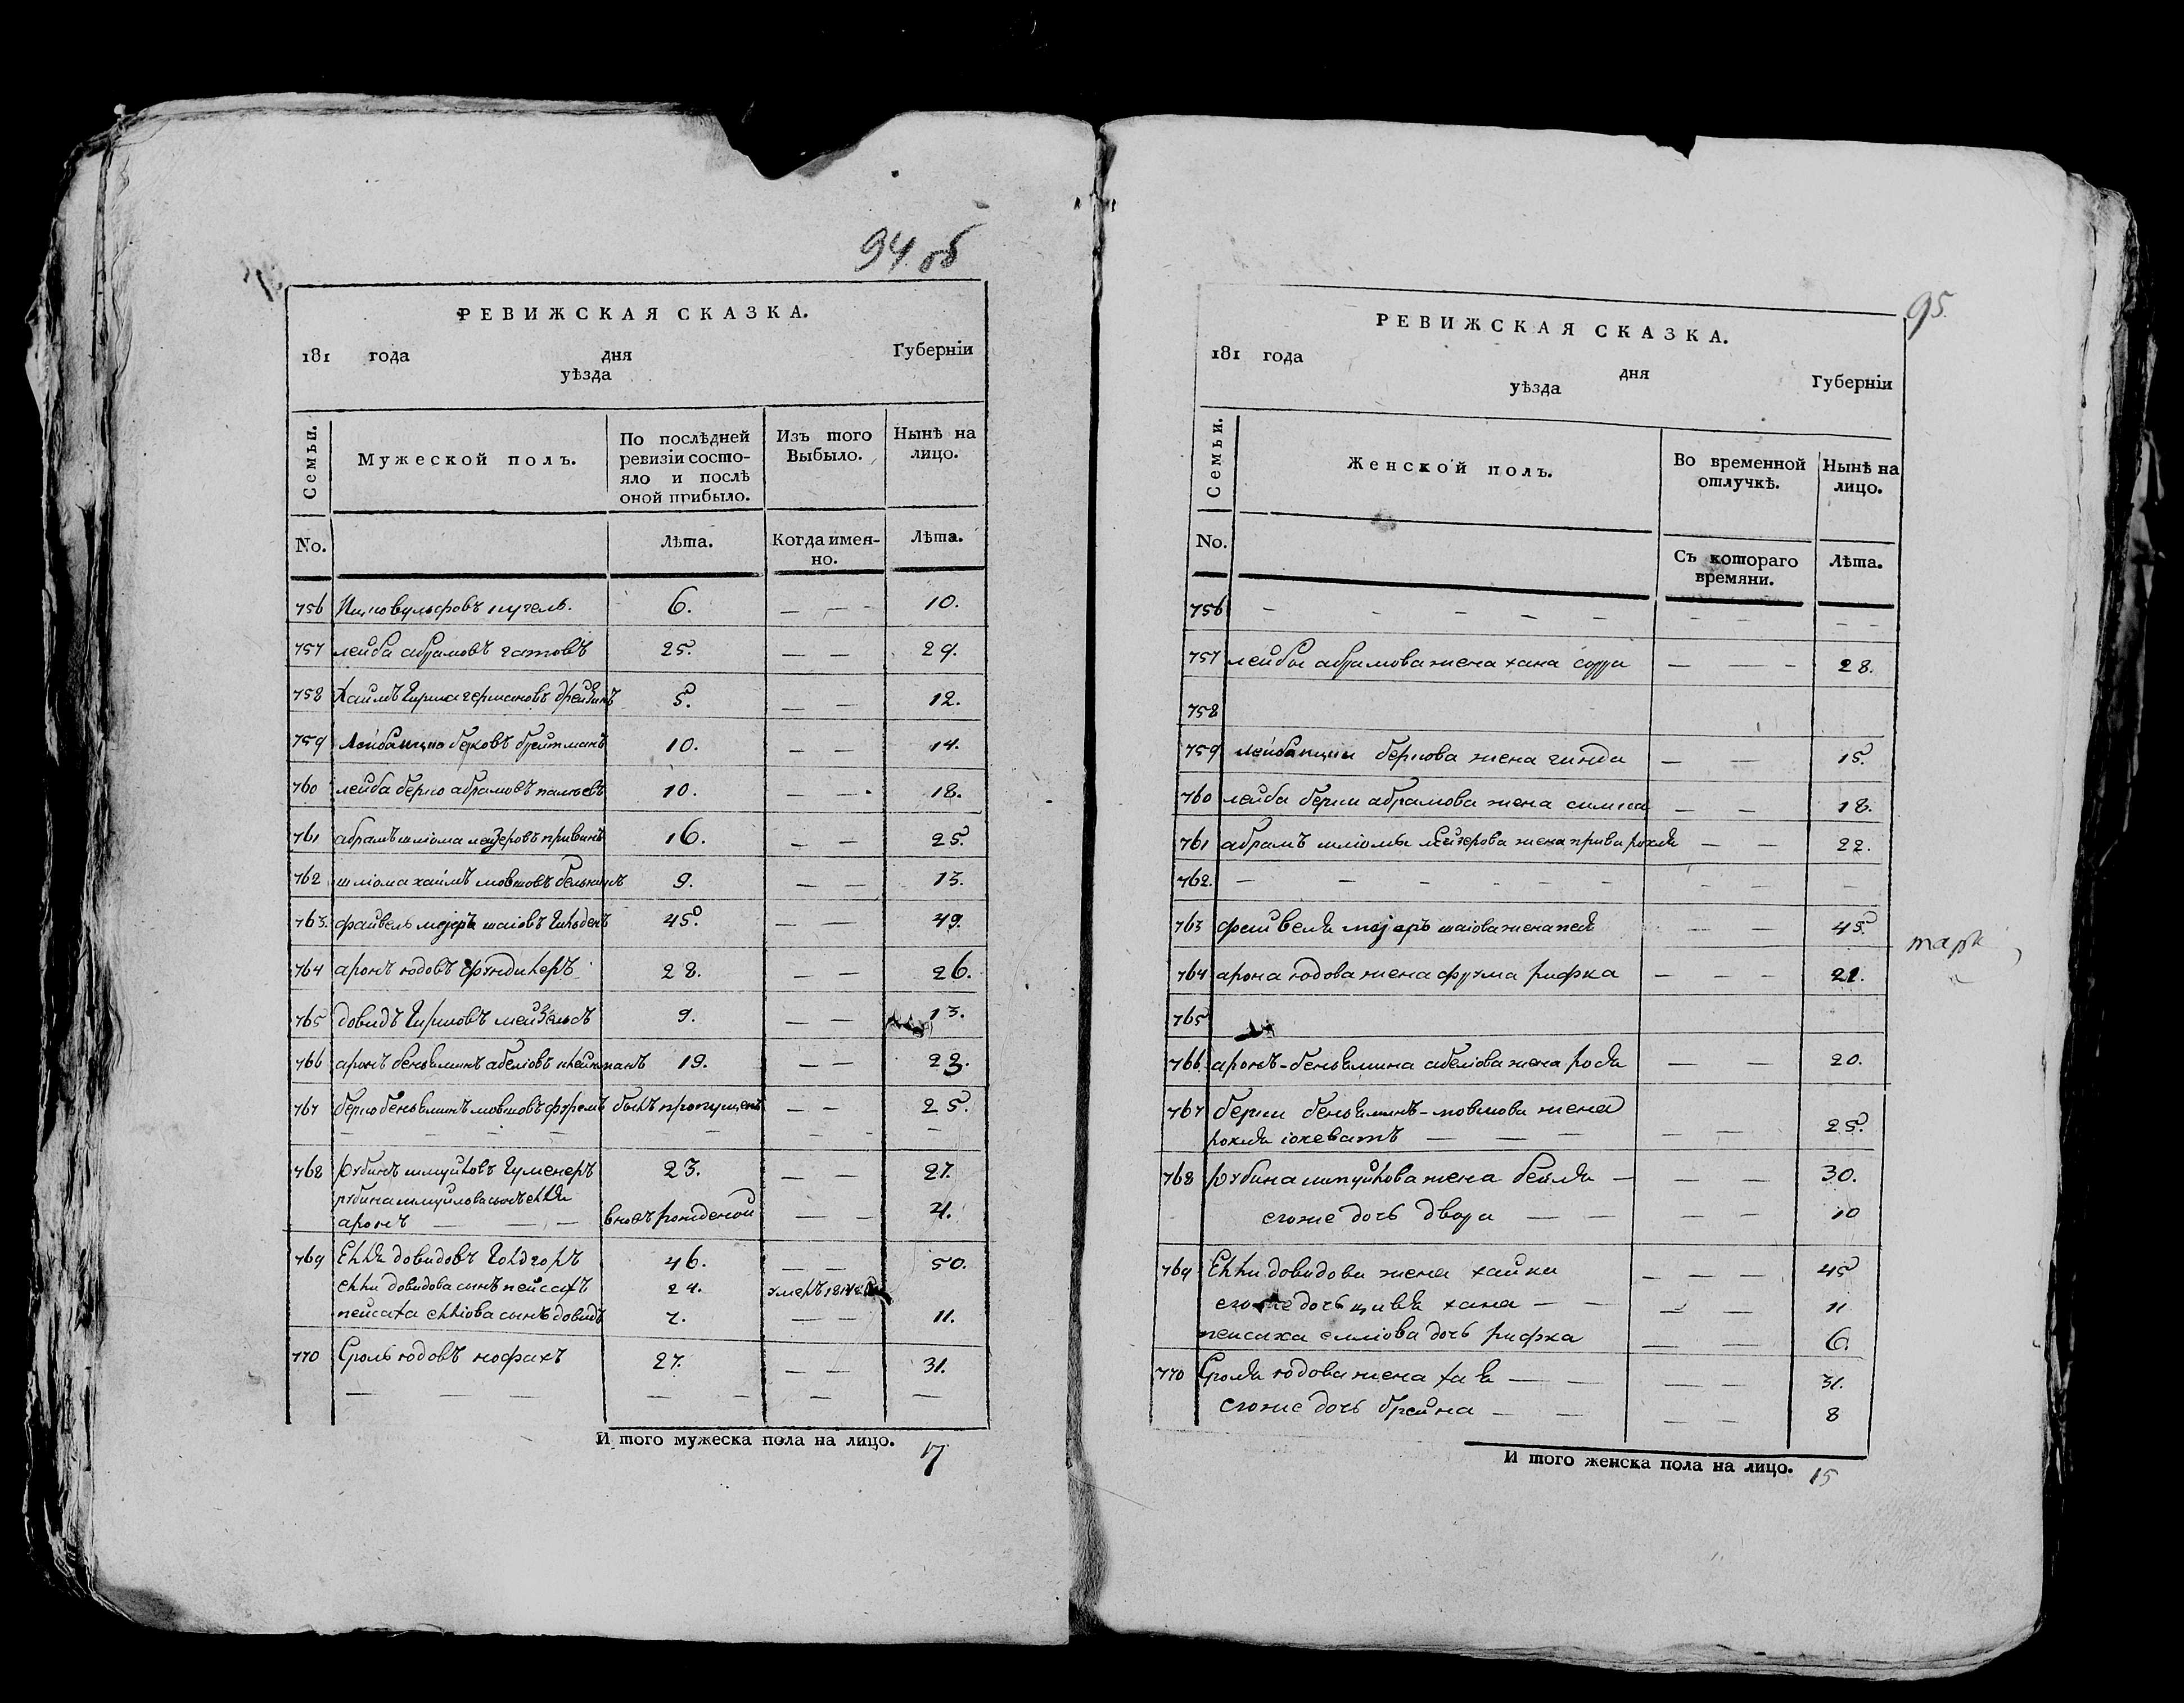 94 об
РЕВИЖСКАЯ СКАЗКА.
181 года дня Губерніи
уѣзда
Семьи. Мужеской полъ. По послѣдней ревизіи состояло и послѣ оной прибыло. Изъ того Выбыло. Нынѣ на лицо.
No. Лѣта. Когда именно. Лѣта.
756 Ицковульфовъ 6. — — — 10.
757 лейба абрамовъ гатовъ 25. — — 29.
758 Хаимъ Гиршагермановъ 5. — — 12.
759 Лейбаицко берковъ брейтманъ 10. — — 14.
760 лейба берко абрамовъ 10. — — 18.
761 абрамъ шліома лейзеровъ 16. — — 25.
762 шліома хаимъ мовшовъ 9. — — 13.
763. файвель меjеръ шаіовъ 45. — — 49.
764 аронъ юдовъ 28. — — 26.
765 довидъ Гиршовъ мейзельсъ 9. — — 13.
766 аронъ беньяминъ абеліовъ клейнманъ 19. — — 23.
767 берко беньяминъ мовшовъ былъ пропущенъ — — 25.
— — — — — — — —
768 рубинъ шмуйловъ 23. — — 27.
рубина шмуйлова сынъ елля
аронъ — — — вновъ рожденой — — 4.
769 Елля довидовъ Голдгоръ 46. — — 50.
елли довидова сынъ пейсахъ 24. умеръ
пейсаха елліова сынъ довидъ 7. — — 11.
770 Сроль юдовъ 27. — — 31.
— — — — — — —
И того мужеска пола на лицо. 17
95.
РЕВИЖСКАЯ СКАЗКА.
181 года дня Губерніи
уѣзда
Семьи. Женской полъ. Во временной отлучкѣ. Нынѣ на лицо.
No. Съ котораго времяни. Лѣта.
756 — — — — — — — —
757 лейбы абрамова жена хана сура — — — 28.
758
759 лейбаицки беркова жена гинда — — 15.
760 лейба берки абрамова жена симка — — 18.
761 абрамъ шліомы лейзерова жена рохля — — 22.
762. — — — — — — — — —
763 файвеля меjеръ шаіова жена — — 45.
764 арона юдова жена фрума рифка — — — 21.
765
766. аронъ-беньямина абеліова жена рося — — 20.
767 берки беньяминъ-мовшова жена
рохля іохеватъ — — — — — 25.
768 рубина шмуйлова жена бейля — — — 30.
егоже дочь двора — — — — 10
769 Елли довидова жена хайка — — — 45
егоже дочь цивя хана — — — — 11
пейсаха елліова дочь рифка — — 6.
770 Сроля юдова жена хая — — — — 31.
егоже дочь брейна — — — — 8
И того женска пола на лицо. 15